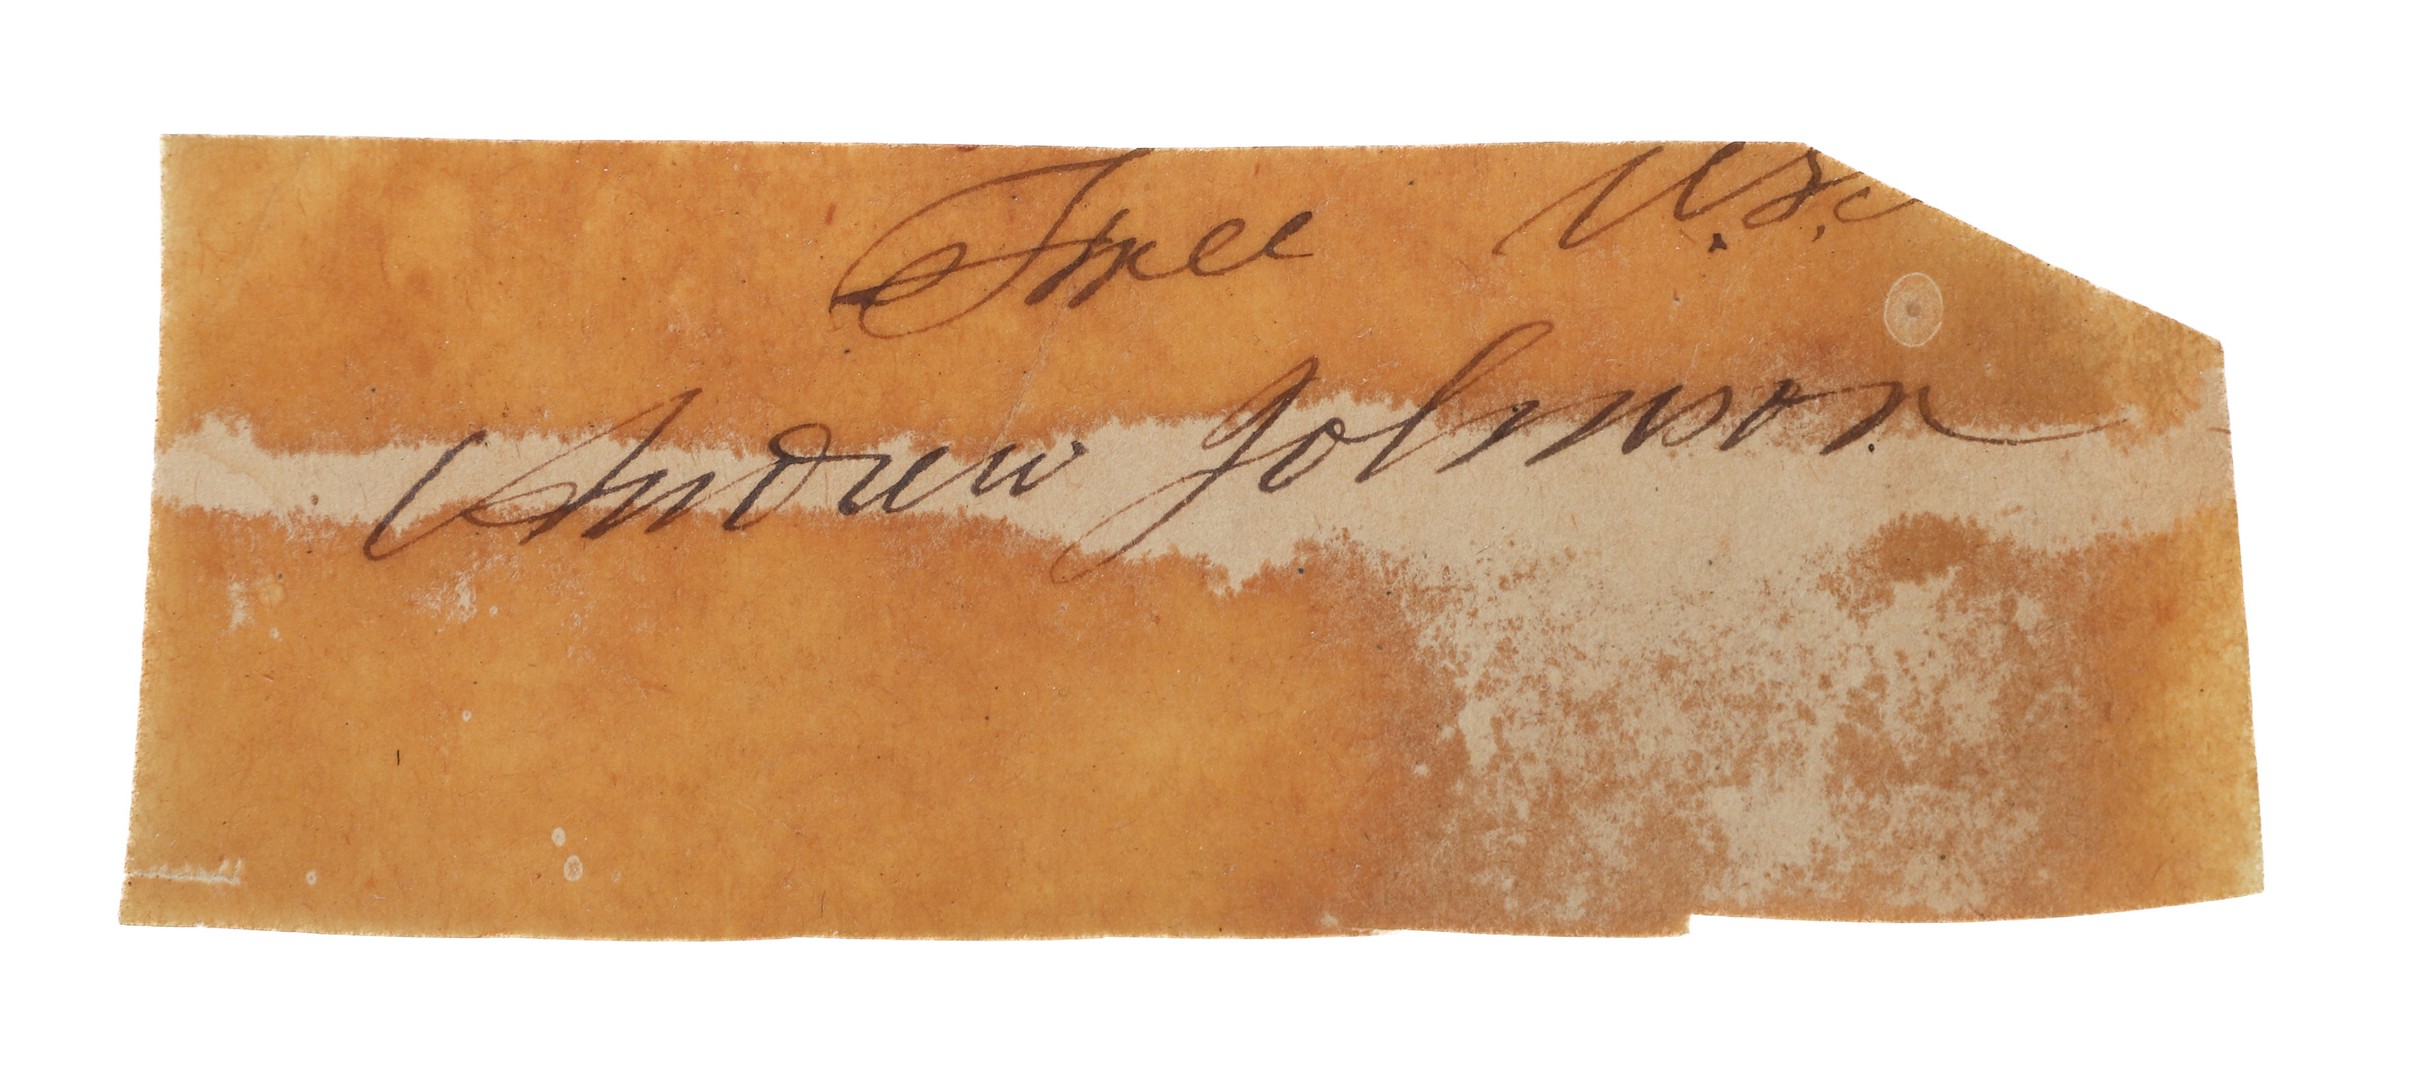 Free U.S.
Andrew Johnson